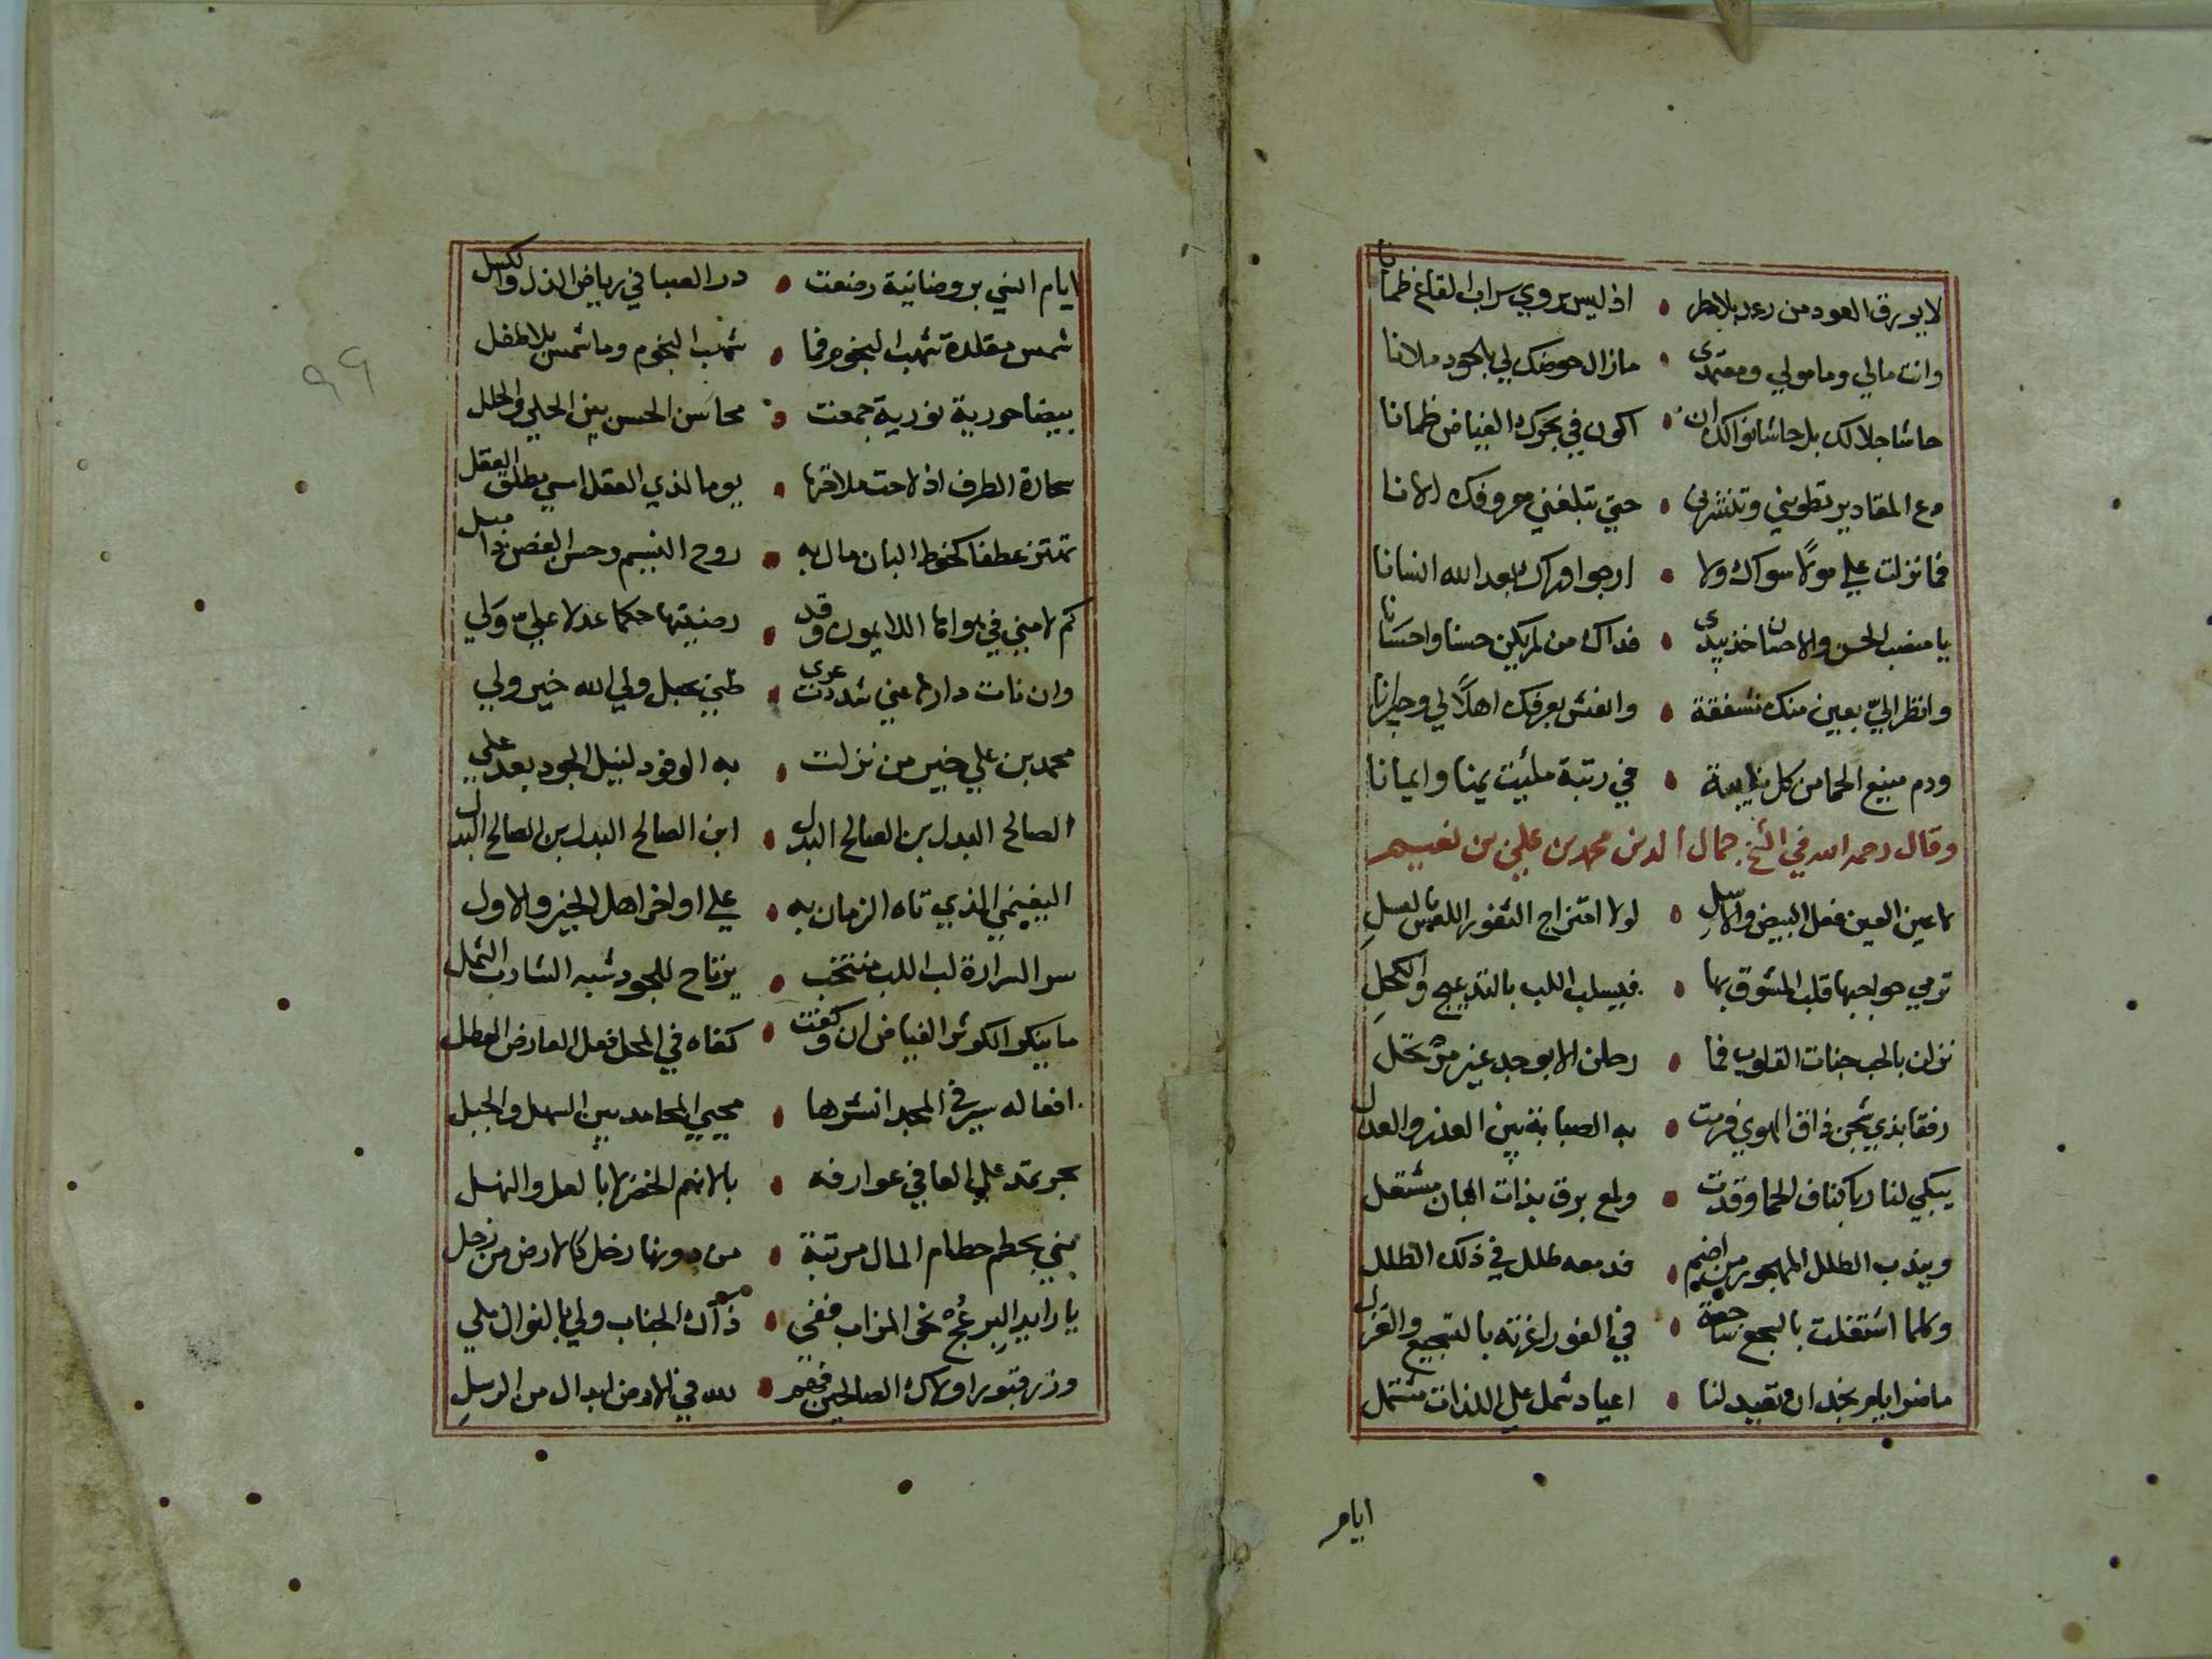 لا يورق العود من رعد بلا مطر • اذ ليس يروي سراب القاع ظمانا
وانت مالي ومامولي ومعتمدى • مازال حوضك لي بالجود ملانا
حاشا جلالك بل حاشا نوالك ان • اكون في بحرك الفياض ظمانا
دع المقادير تطويني وتنشرني • حتي تبلغني معروفك الانا
فما نزلت علي مولا سواك ولا • ارجوا وراك بعد الله انسانا
يا منصب الحسن والاحسان خذ بيدى • فداك من لم يكن حسنا واحسانا
وانظر الي بعين منك مشفقة • وانعش بعرفك اهلا لي وجيرانا
ودم منيع الحما من كل نايبة • في رتبة ملئت يمنا وايمانا
وقال رحمه الله في الشيخ جمال الدين محمد بن علي بن نعيم
لاعين العين فعل البيض والاسل • لولا امتزاج الثغور اللعس بالعسل
ترمي حواجبها قلب المشوق بها • فيسلب اللب بالتدعيج والكحل
نزلن بالحب جنات القلوب فما • رحلن الا بوجد غير مرتحل
رفقا بذي شجن ذاق الهوي فرمت • به الصبابة بين العذر والعذل
يبكي لنار باكناف الحما وقدت • ولمع برق بذات البان مشتعل
ويندب الطلل المهجور من اضم • فدمعه طلل في ذلك الطلل
وكلما اشتغلت بالسجع ساجعة • في الغور اغرته بالتسجيع والغزل
ما ضوا يام نجد ان تعيد لنا • اعياد شمل علي اللذات مشتمل
ايام
ايام التي بروضانية رضعت • در الصبا في رياض الدل والكسل
شمس مقلدة شهب النجوم فما • شهب النجوم وما شمس بلا طفل
بيضا حورية نورية جمعت • محاسن الحسن بين الحلي والحلل
سحارة الطرف اذ لاحت ملاقتها • يوما لذي العقل امسي مطلق العقل
تهتز عطفا كخوط البان مال به • روح النسيم وحسن الغصن ذا ميل
كم لامني في هواها اللايمون وقد • رضيتها حكما عدلا علي ولي
وان نات دارها عني شددت عرى • ظني بحبل ولي الله خير ولي
محمد بن علي خير من نزلت • به الوفود لنيل الجود بعد علي
الصالح البدل بن الصالح البدل • ابن الصالح البدل بن الصالح البدل
النعيمي الذي تاه الزمان به • علي اواخر اهل الخير والاول
سر السرارة لب اللب منتخب • يرتاح للجود شبه الشارب الثمل
ما ينكر الكوثر الفياض ان وكفت • كفاه في المحل فعل العارض الهطل
افعاله سير في المجد انشرها • محيي المحامد بين السهل والجبل
بحر يمد علي العافي عوارفه • بالانعم الخضر لا بالعل والنهل
بني بحطم حطام المال مرتبة • من دونها زحل كالارض من زحل
يا رايد البر عج نحو المزاب ففي • ذاك الجناب ولي بالنوال ملي
وزر قبور اولاك الصالحين فهم • لله في الارض ابدال من الرسل
٩٩